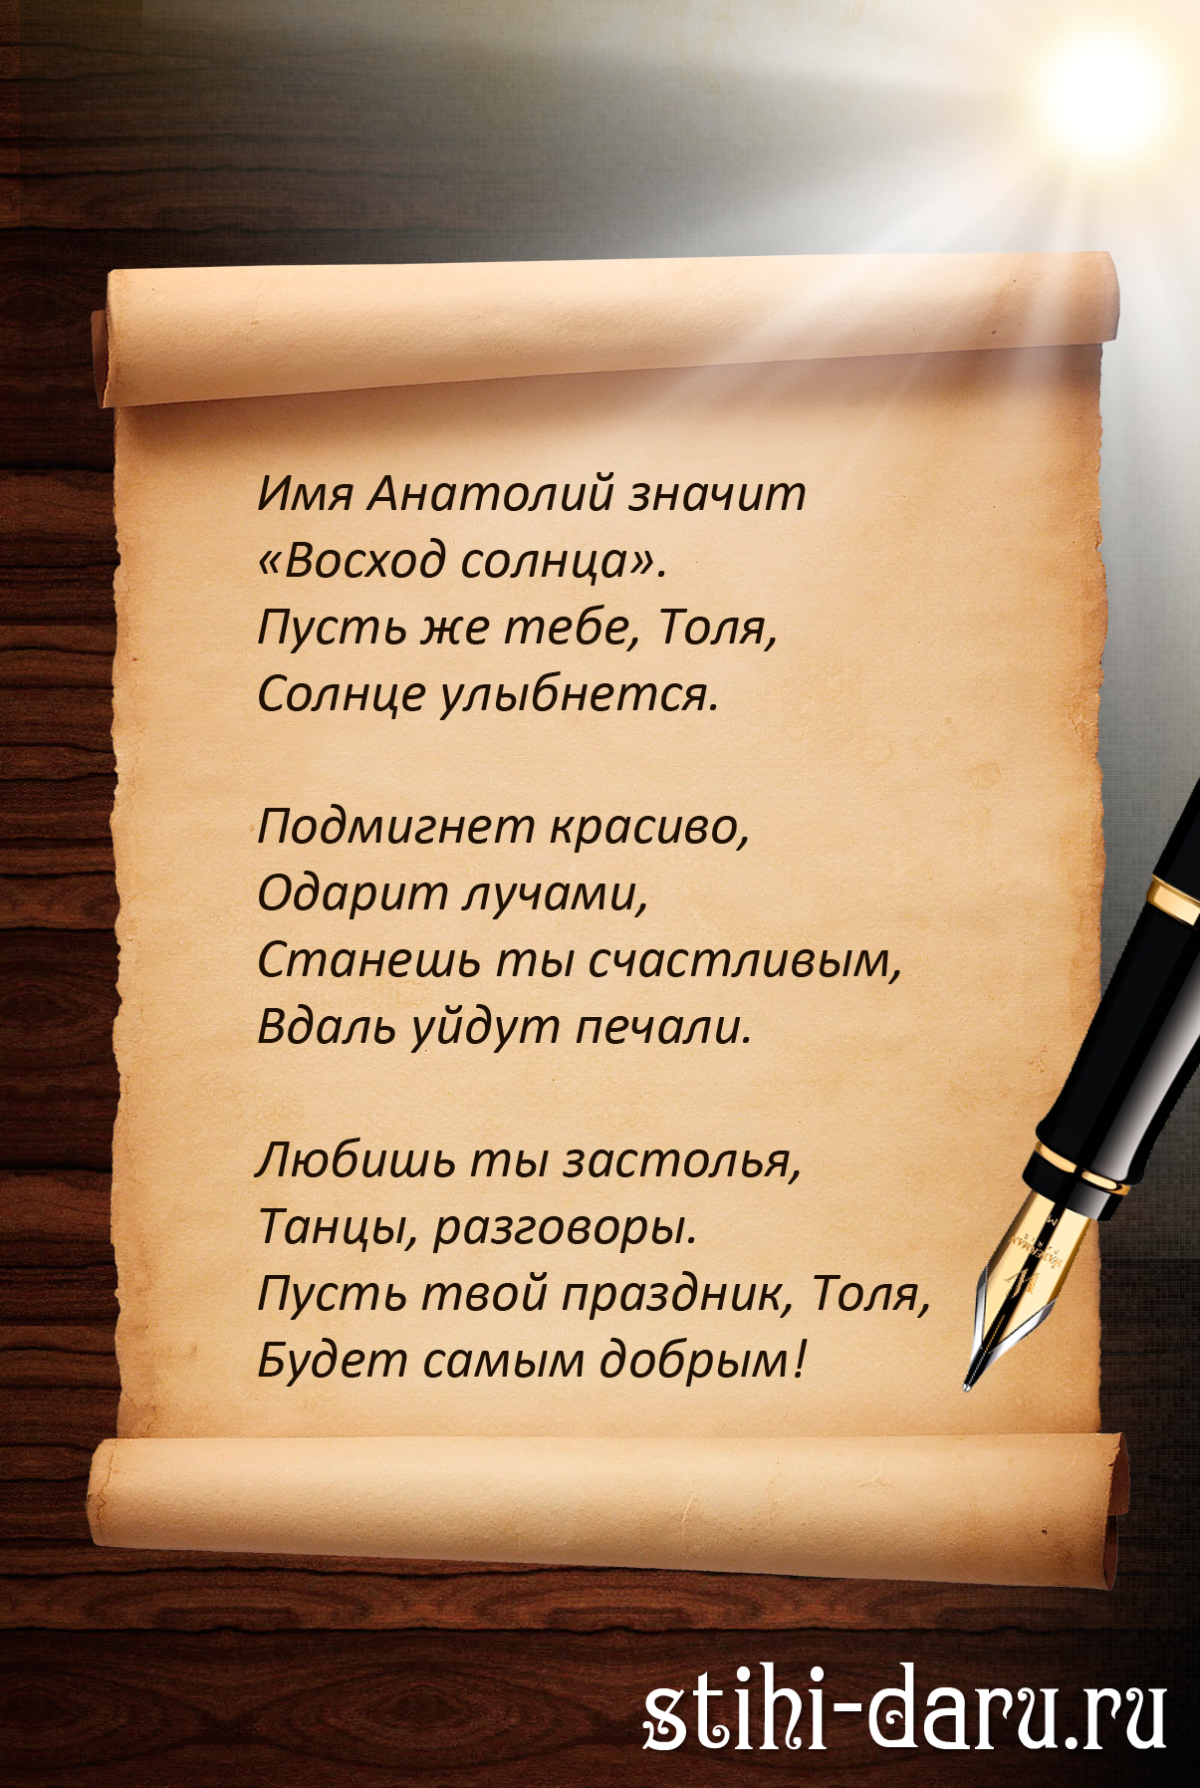 Имя Анатолий значит
«Восход солнца».
Пусть же тебе, Толя,
Солнце улыбнется.
Подмигнет красиво,
Одарит лучами,
Станешь ты счастливым,
Вдаль уйдут печали.
Любишь ты застолья,
Танцы, разговоры.
Пусть твой праздник, Толя,
Будет самым добрым!
stihi-daru.ru